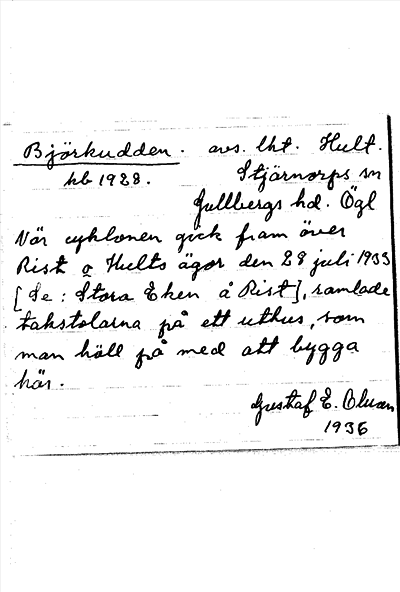 Björkudden. avs. lht. Hult.
hb 1928. Stjärnorps sn
Gullbergs hd. Ögl
När cyklonen gick fram över
Rist o Hults ägor den 28 juli 1933
[Se: Stora Eken å Rist], ramlade
takstolarna på ett uthus, som
man höll på med att bygga
här.
Gustaf E.
1936